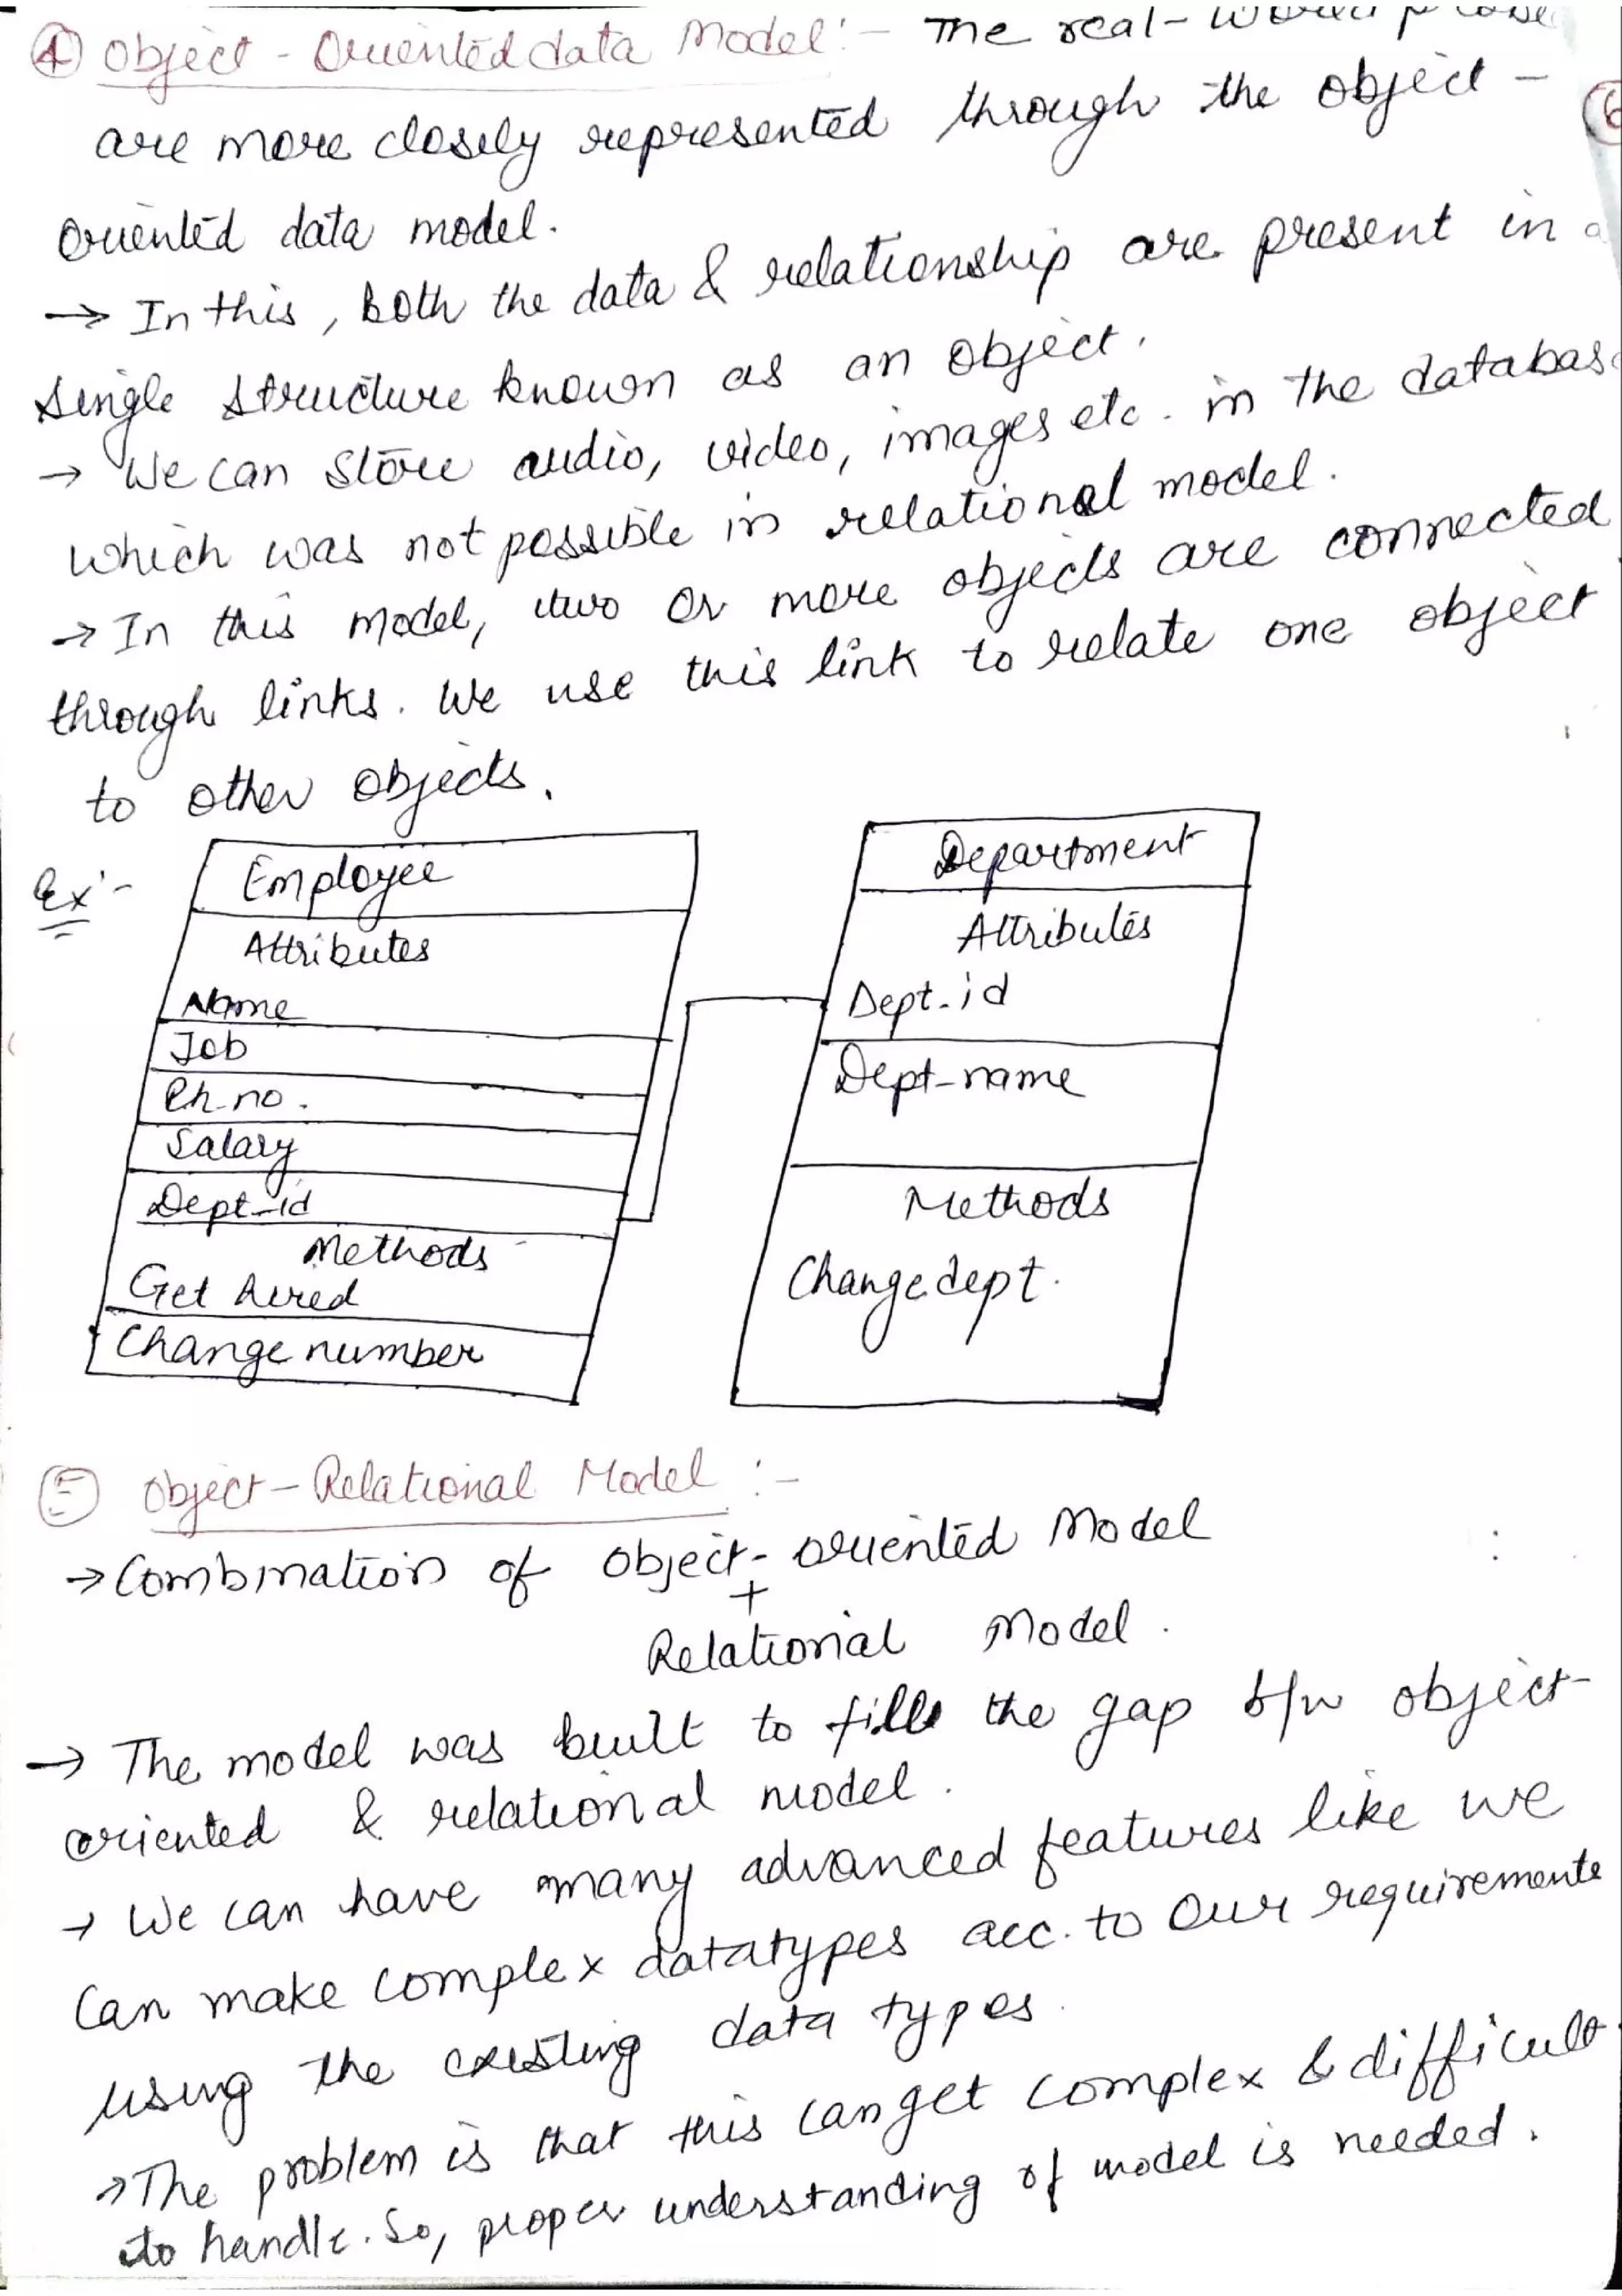 ④ Object - Oriented data Model :- The real-world
are more closely represented through the object -
6
Oriented data model.
→ In this, both the data & relationship are present in a
single structure known as an object.
→ We can store audio, video, images etc. in the databas
which was not possible in relational model.
→ In this model, two or more objects are connected
through links. We use this link to relate one object
to other objects.
Ex:-
Employee
Attributes
Name
Job
Ph-no.
Salary
Dept-id
Methods
Get hired
Change number
Department
Attributes
Dept-id
Dept-name
Methods
Change dept.
⑤ Object-Relational Model :-
→ Combination of Object-oriented Model
+
Relational Model.
→ The model was built to fill the gap b/w object-
oriented & relational model.
→ We can have many advanced features like we
can make complex datatypes acc. to Our requirements
using the existing data types.
→ The problem is that this can get complex & difficult
to handle. So, proper understanding of model is needed.